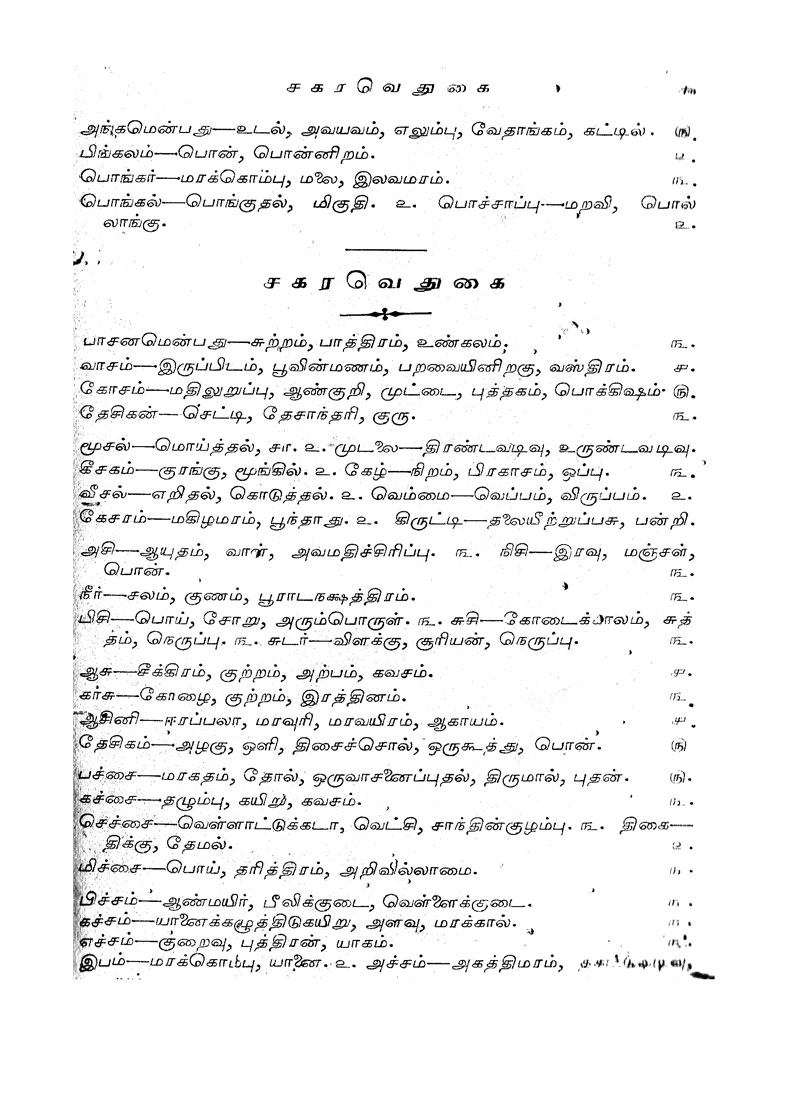 சகரவெதுகை
அங்கமென்பது—உடல், அவயவம், எலும்பு, வேதாங்கம், கட்டில். ௫.
பிங்கலம்—பொன், பொன்னிறம். ௨.
பொங்கர்—மரக்கொம்பு, மலை, இலவமரம். ௩.
பொங்கல்—பொங்குதல், மிகுதி. ௨. பொச்சாப்பு—மறவி, பொல்
லாங்கு. ௨.
சகரவெதுகை
பாசனமென்பது—சுற்றம், பாத்திரம், உண்கலம். ௩.
வாசம்—இருப்பிடம், பூவின்மணம், பறவையினிறகு, வஸ்திரம். ௪.
கோசம்—மதிலுறுப்பு, ஆண்குறி, முட்டை, புத்தகம், பொக்கிஷம். ௫.
தேசிகன்—செட்டி, தேசாந்தரி, குரு. ௩.
மூசல்—மொய்த்தல், சா. ௨. முடலை—திரண்டவடிவு, உருண்டவடிவு.
கீசகம்—குரங்கு, மூங்கில். ௨. கேழ்—நிறம், பிரகாசம், ஒப்பு. ௩.
வீசல்—எறிதல், கொடுத்தல். ௨. வெம்மை—வெப்பம், விருப்பம். ௨.
கேசரம்—மகிழமரம், பூந்தாது. ௨. கிருட்டி—தலையீற்றுப்பசு, பன்றி.
அசி—ஆயுதம், வாள், அவமதிச்சிரிப்பு. ௩. நிசி—இரவு, மஞ்சள்,
பொன். ௩.
நீர்—சலம், குணம், பூராடநக்ஷத்திரம். ௩.
பிசி—பொய், சோறு, அரும்பொருள். ௩. சுசி—கோடைக்காலம், சுத்
தம், நெருப்பு. ௩. சுடர்—விளக்கு, சூரியன், நெருப்பு. ௩.
ஆசு—சீக்கிரம், குற்றம், அற்பம், கவசம். ௪.
கர்சு—கோழை, குற்றம், இரத்தினம். ௩.
ஆசினி—ஈரப்பலா, மரவுரி, மரவயிரம், ஆகாயம். ௪.
தேசிகம்—அழகு, ஒளி, திசைச்சொல், ஒருகூத்து, பொன். ௫
பச்சை—மரகதம், தோல், ஒருவாசனைப்புதல், திருமால், புதன். ௫.
கச்சை—தழும்பு, கயிறு, கவசம். ௩.
செச்சை—வெள்ளாட்டுக்கடா, வெட்சி, சாந்தின்குழம்பு. ௩. திகை—
திக்கு, தேமல். ௨.
மிச்சை—பொய், தரித்திரம், அறிவில்லாமை. ௩.
பிச்சம்—ஆண்மயிர், பீலிக்குடை, வெள்ளைக்குடை. ௩.
கச்சம்—யானைக்கழுத்திடுகயிறு, அளவு, மரக்கால். ௩.
எச்சம்—குறைவு, புத்திரன், யாகம். ௩.
இபம்—மரக்கொம்பு, யானை. ௨. அச்சம்—அகத்திமரம்,